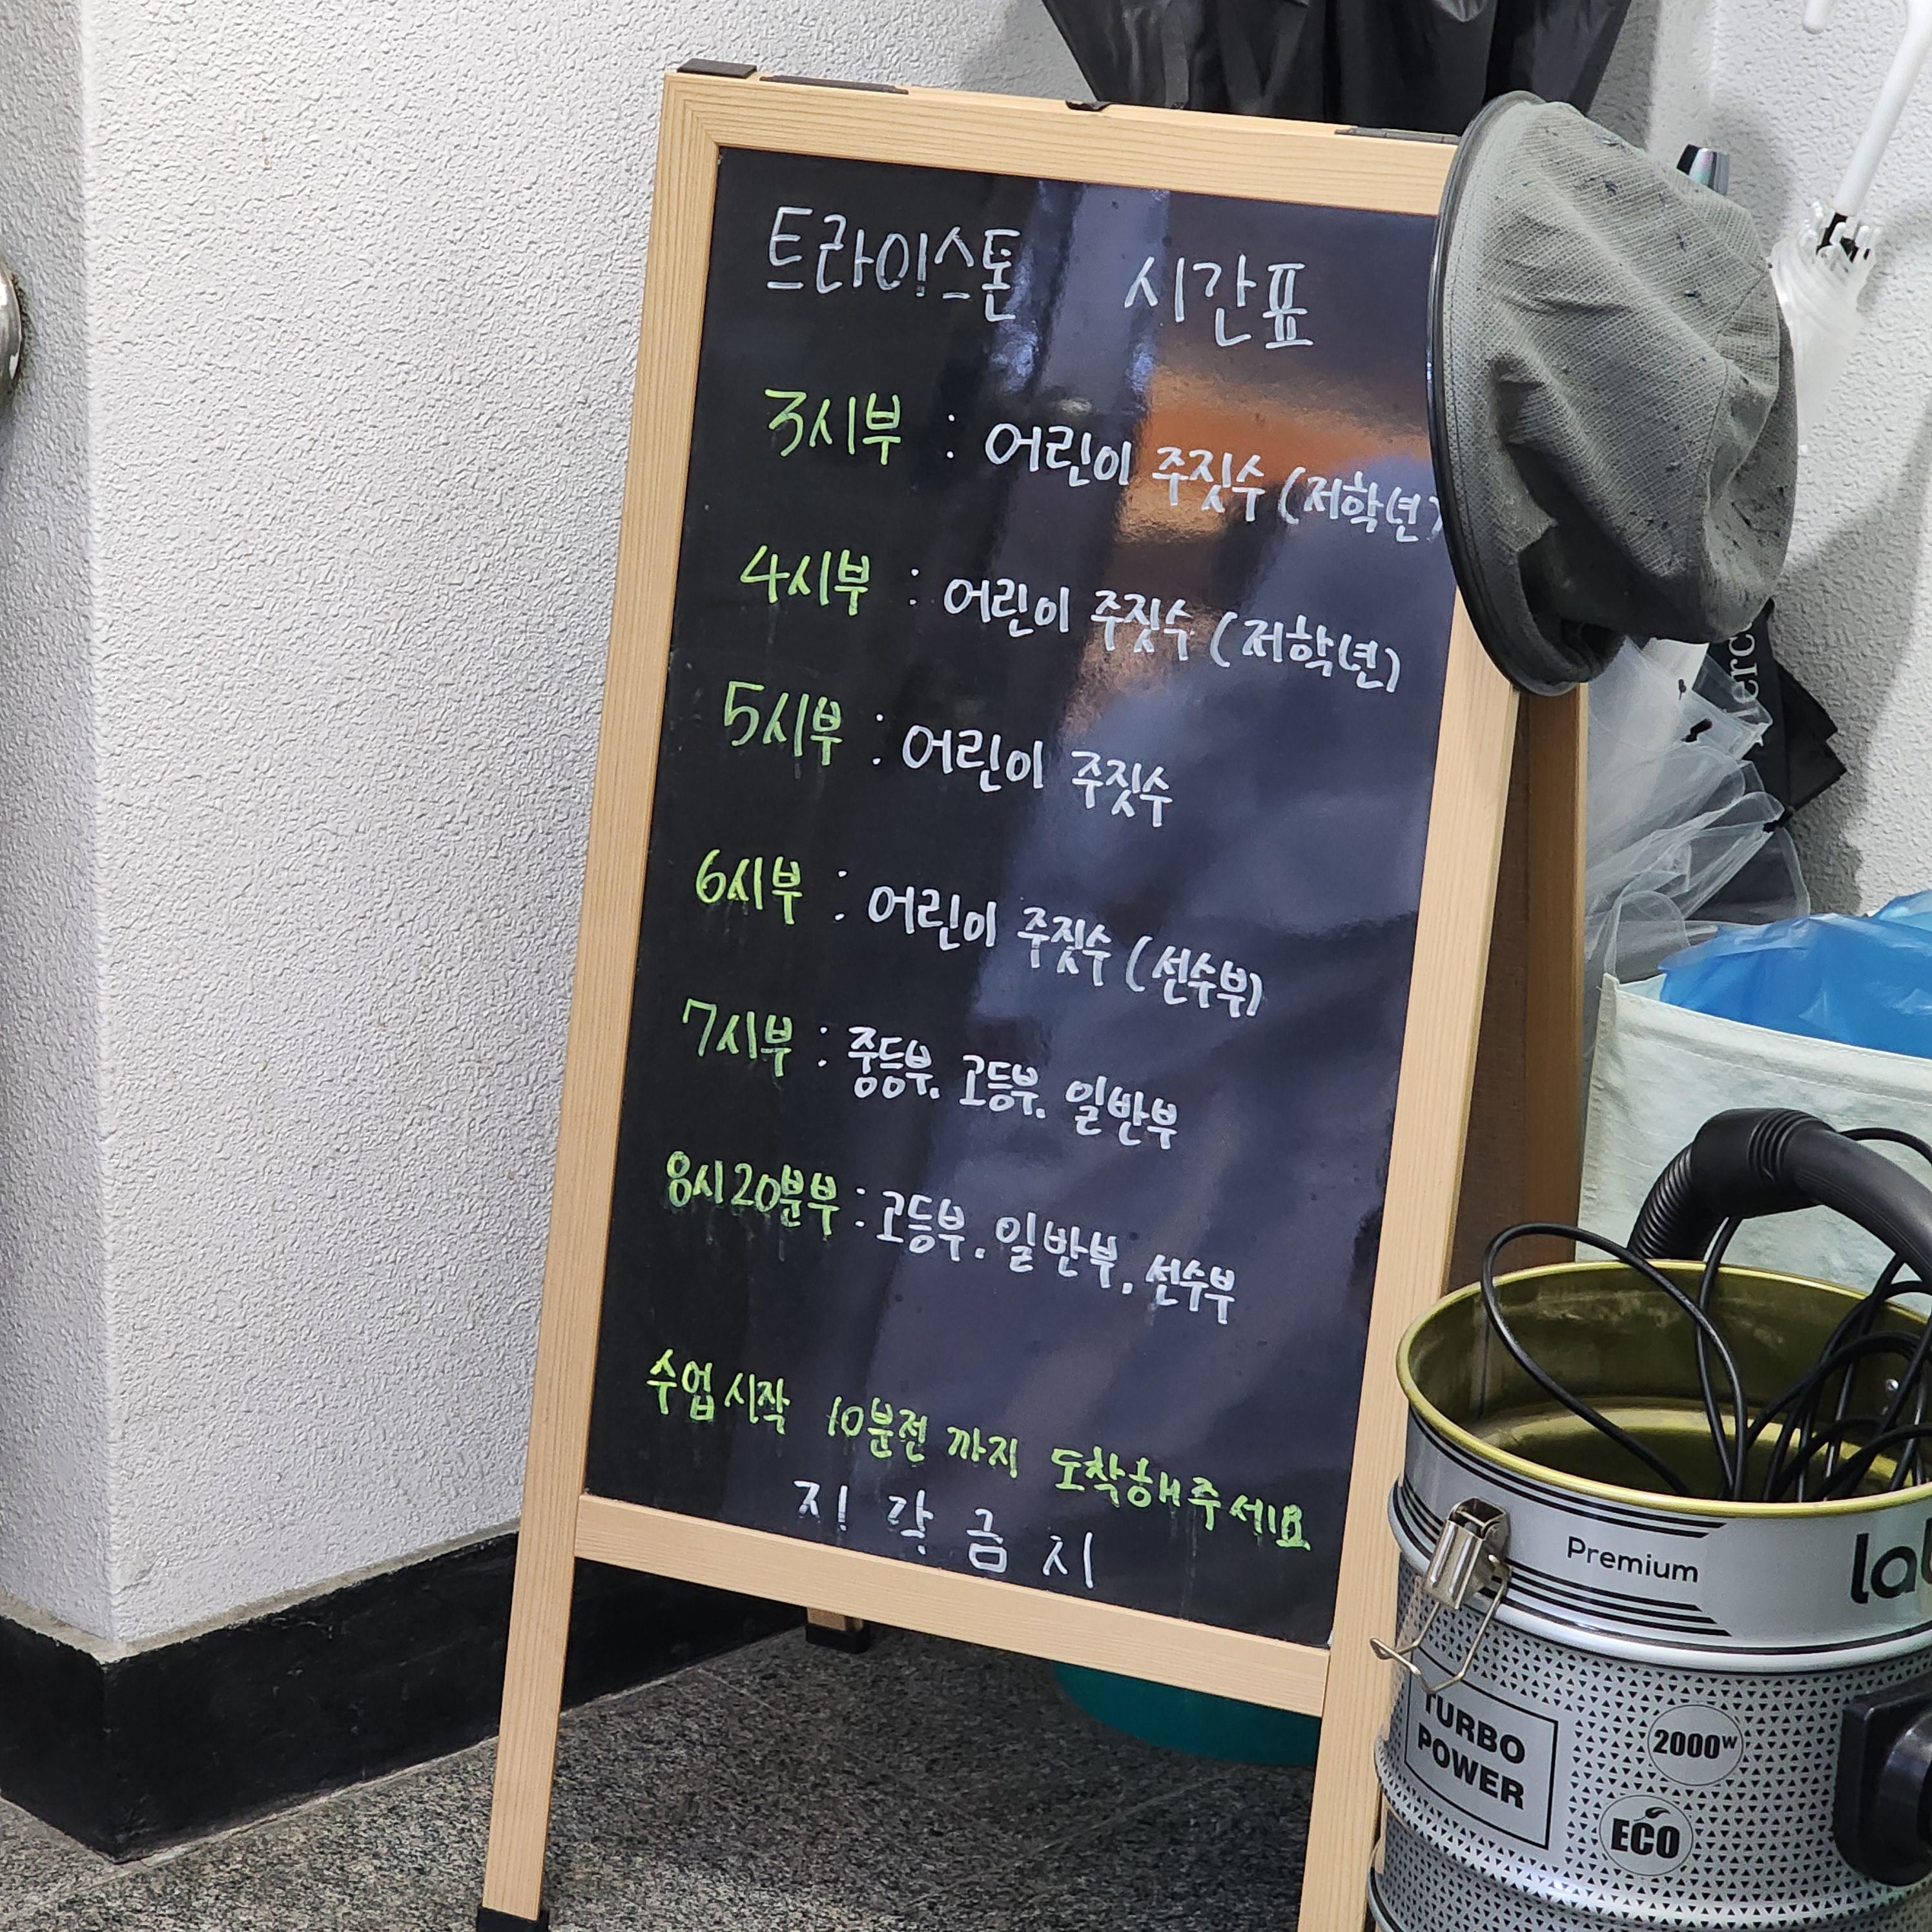 트라이스톤 시간표
3시부 : 어린이 주짓수 (저학년)
4시부 : 어린이 주짓수 (저학년)
5시부 : 어린이 주짓수
6시부 : 어린이 주짓수 (선수부)
7시부 : 중등부. 고등부. 일반부
8시20분부 : 고등부. 일반부. 선수부
수업 시작 10분전 까지 도착해주세요
지 각 금 지
Premium
TURBO
POWER
2000W
ECO